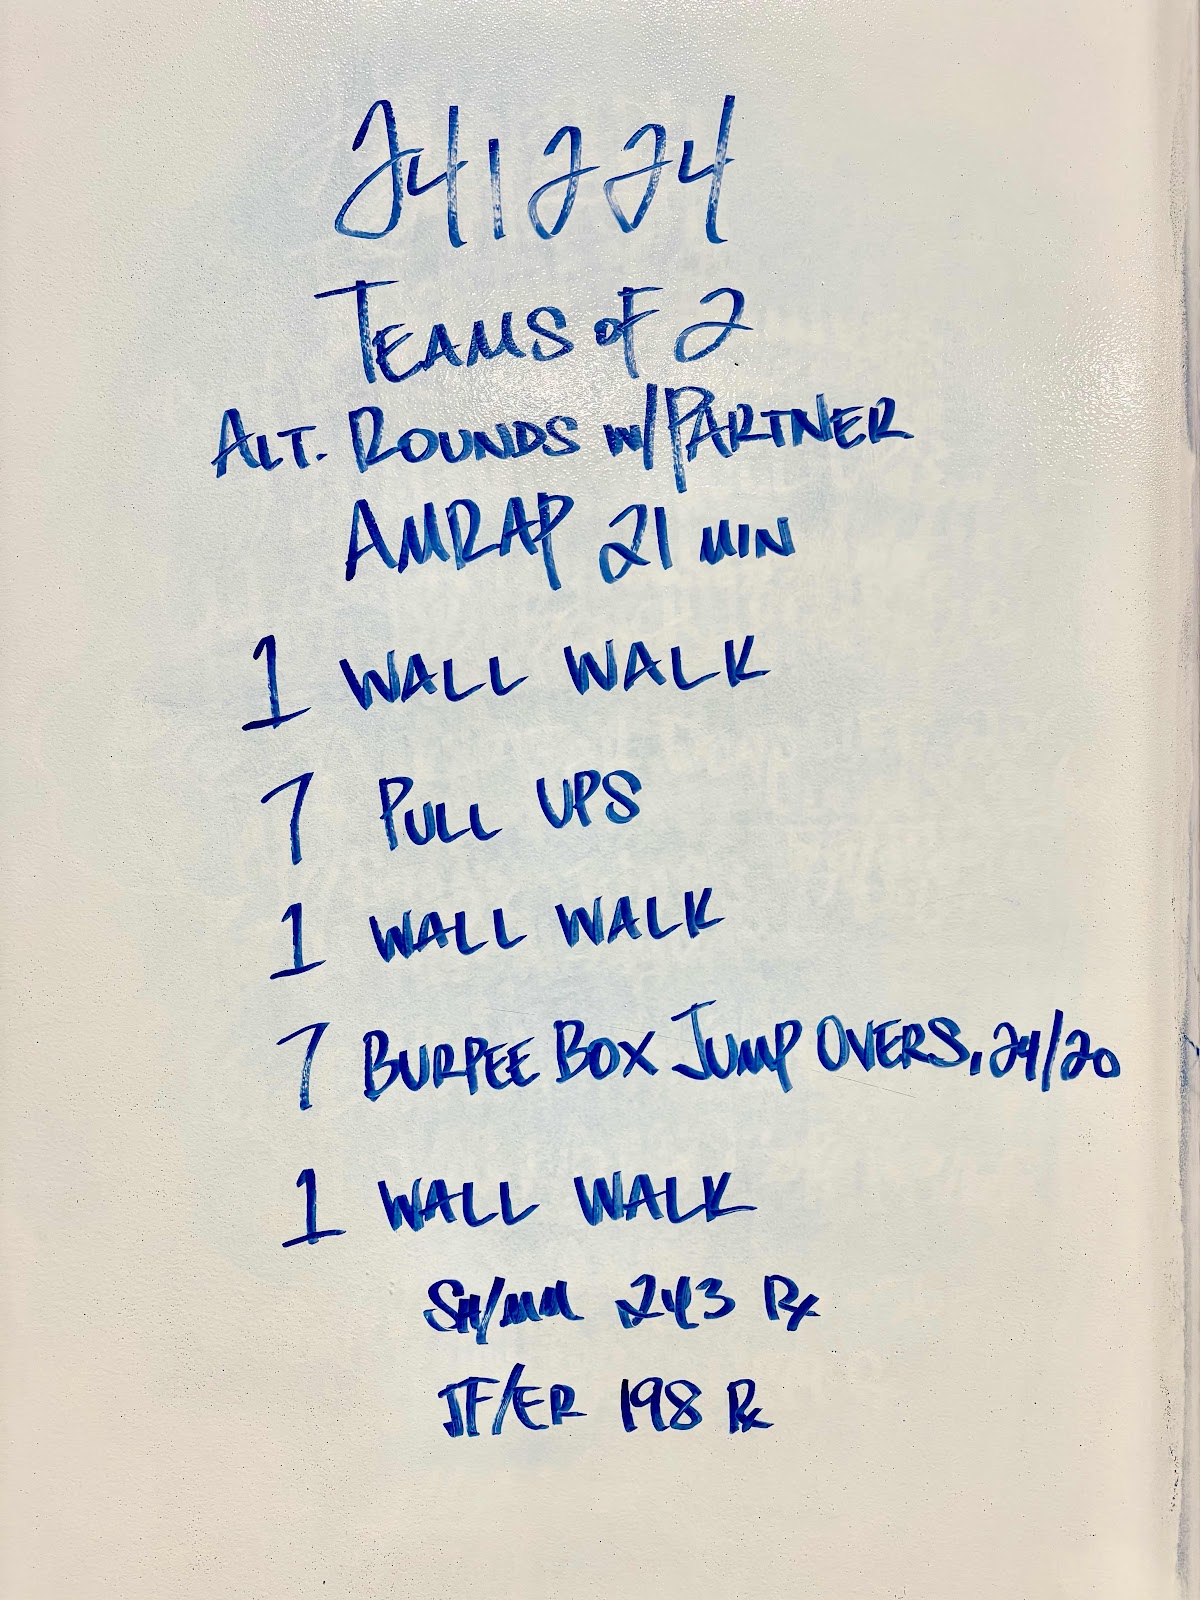 241224
TEAMS OF 2
ALT. ROUNDS W/PARTNER
AMRAP 21 MIN
1 WALL WALK
7 PULL UPS
1 WALL WALK
7 BURPEE BOX JUMP OVERS, 24/20
1 WALL WALK
SH/MM 243 Rx
JF/ER 198 Rx